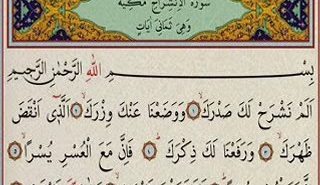 سُورَةُ الْاِنْشِرَاحِ مَكِّيَّةٌ
وَهِىَ ثَمَانِى اٰيَاتٍ
بِسْــــــمِ اللهِ الرَّحْمٰنِ الرَّحِيمِ
اَلَمْ نَشْرَحْ لَكَ صَدْرَكَۙ ١ وَوَضَعْنَا عَنْكَ وِزْرَكَۙ ٢ اَلَّذٖٓى اَنْقَضَ
ظَهْرَكَۙ ٣ وَرَفَعْنَا لَكَ ذِكْرَكَۜ ٤ فَاِنَّ مَعَ الْعُسْرِ يُسْرًاۙ ٥